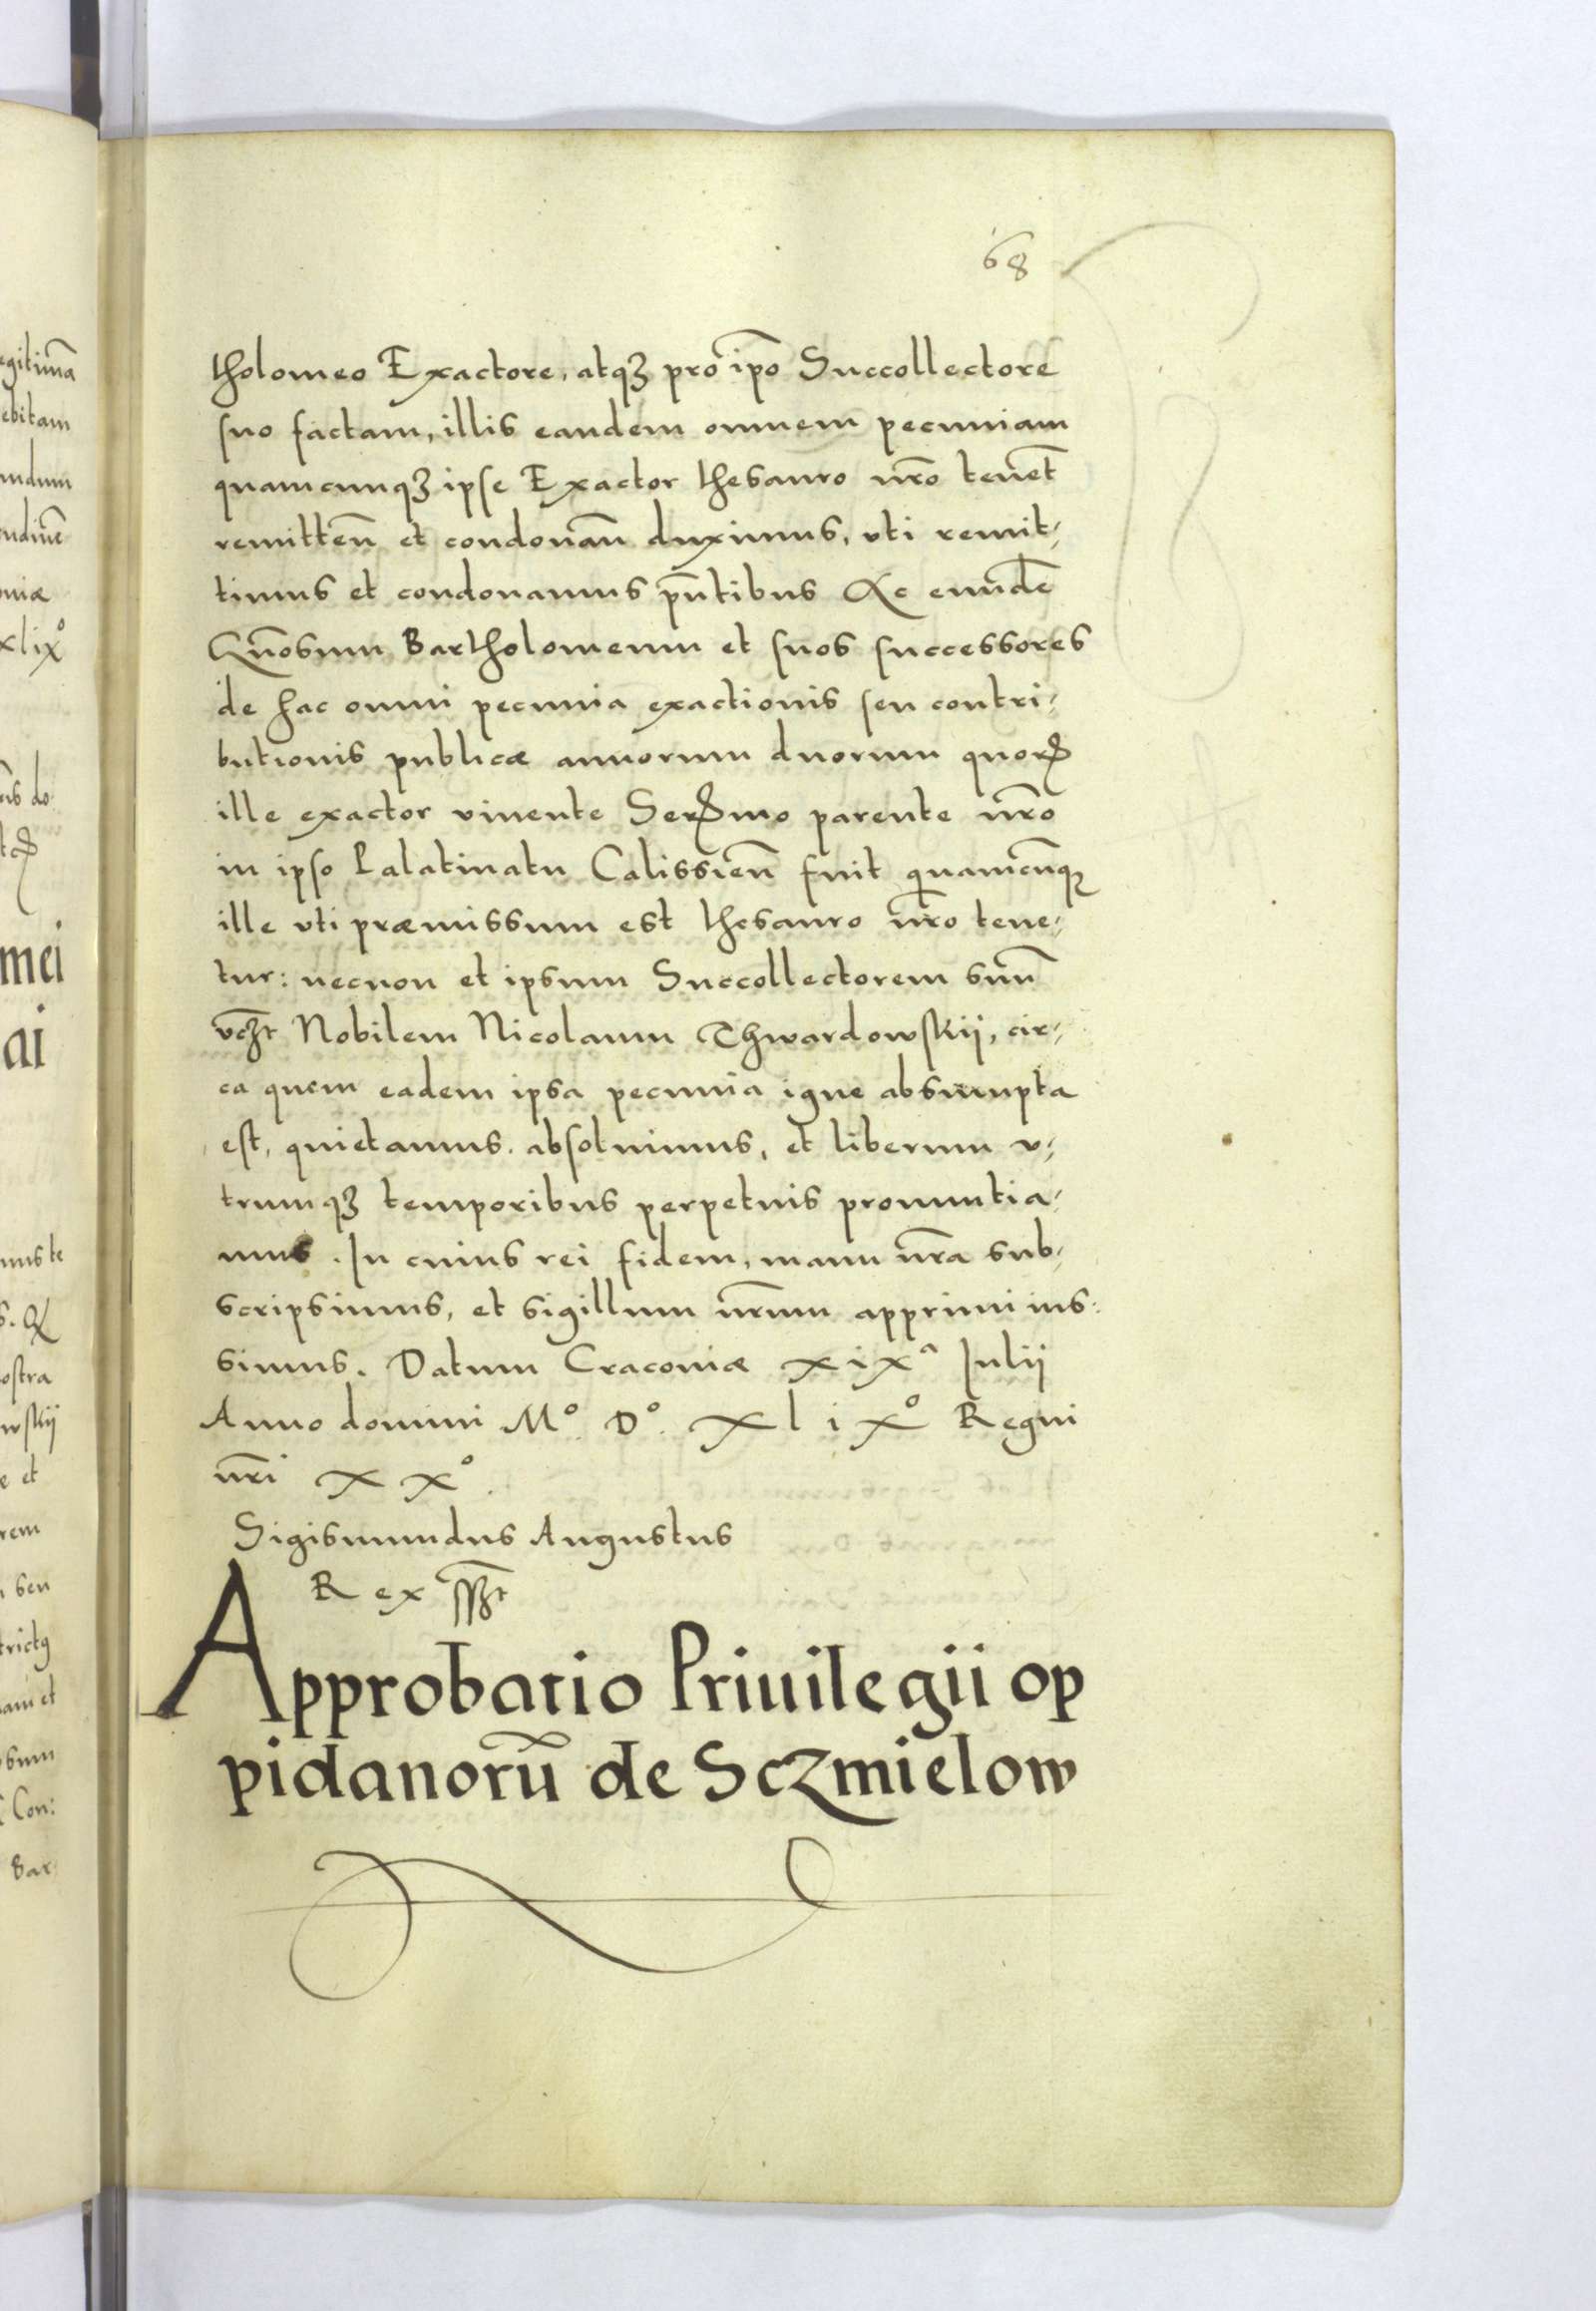 68
tholomeo Exactore, atqꝫ pro ip̄o Succollectore
suo factam, illis eandem omnem pecuniam
quamcunqꝫ ipse Exactor thesauro nr̄o tenet̄
remitten̄ et condonan̄ duximus, vti remit-
timus et condonamus pn̄tibus Ac eundē
Gn̄osum Bartholomeum et suos successores
de hac omni pecunia exactionis seu contri-
butionis publicæ annorum duorum quorꝝ
ille exactor viuente Serꝝmo parente nr̄o
in ipso Palatinatu Calissien̄ fuit quamcūqꝫ
ille vti præmissum est thesauro nr̄o tene-
tur: necnon et ipsum Succollectorem suū
vcꝫt Nobilem Nicolaum Thwardowskij, cir-
ca quem eadem ipsa pecunia igne absumpta
est, quietamus. absoluimus, et liberum v-
trumqꝫ temporibus perpetuis pronuntia-
mus. In cuius rei fidem, manu nr̄a sub-
scripsimus, et sigillum nr̄um apprimi ius:
simus. Datum Cracouiæ xixᵃ Iulij
Anno domini Mº. Dº. xlixº Regni
nr̄i xxº.
Sigismundus Augustus
Rex ssꝫt
Approbatio Priuilegii op
pidanorū de Sczmielow
egitimā
ebitam
ndum
niæ
xlixº
mei
ai
ostra
wskij
e et
rem
seu
Con:
Bar